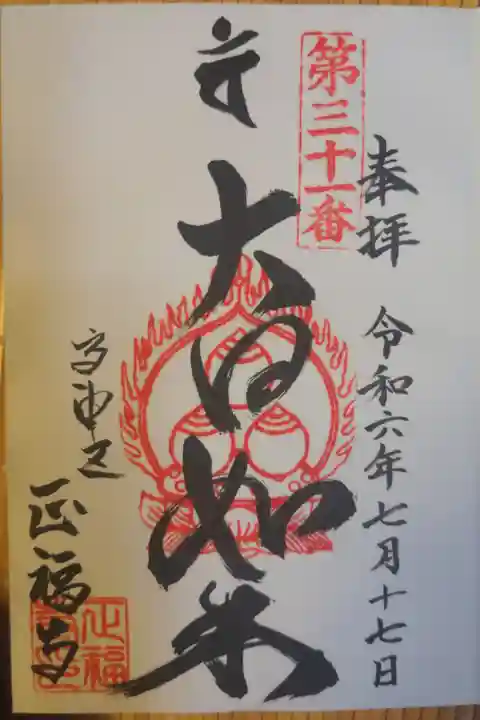 奉拝 令和六年七月十七日
第三十一番
大日如来
正福寺
正福寺印